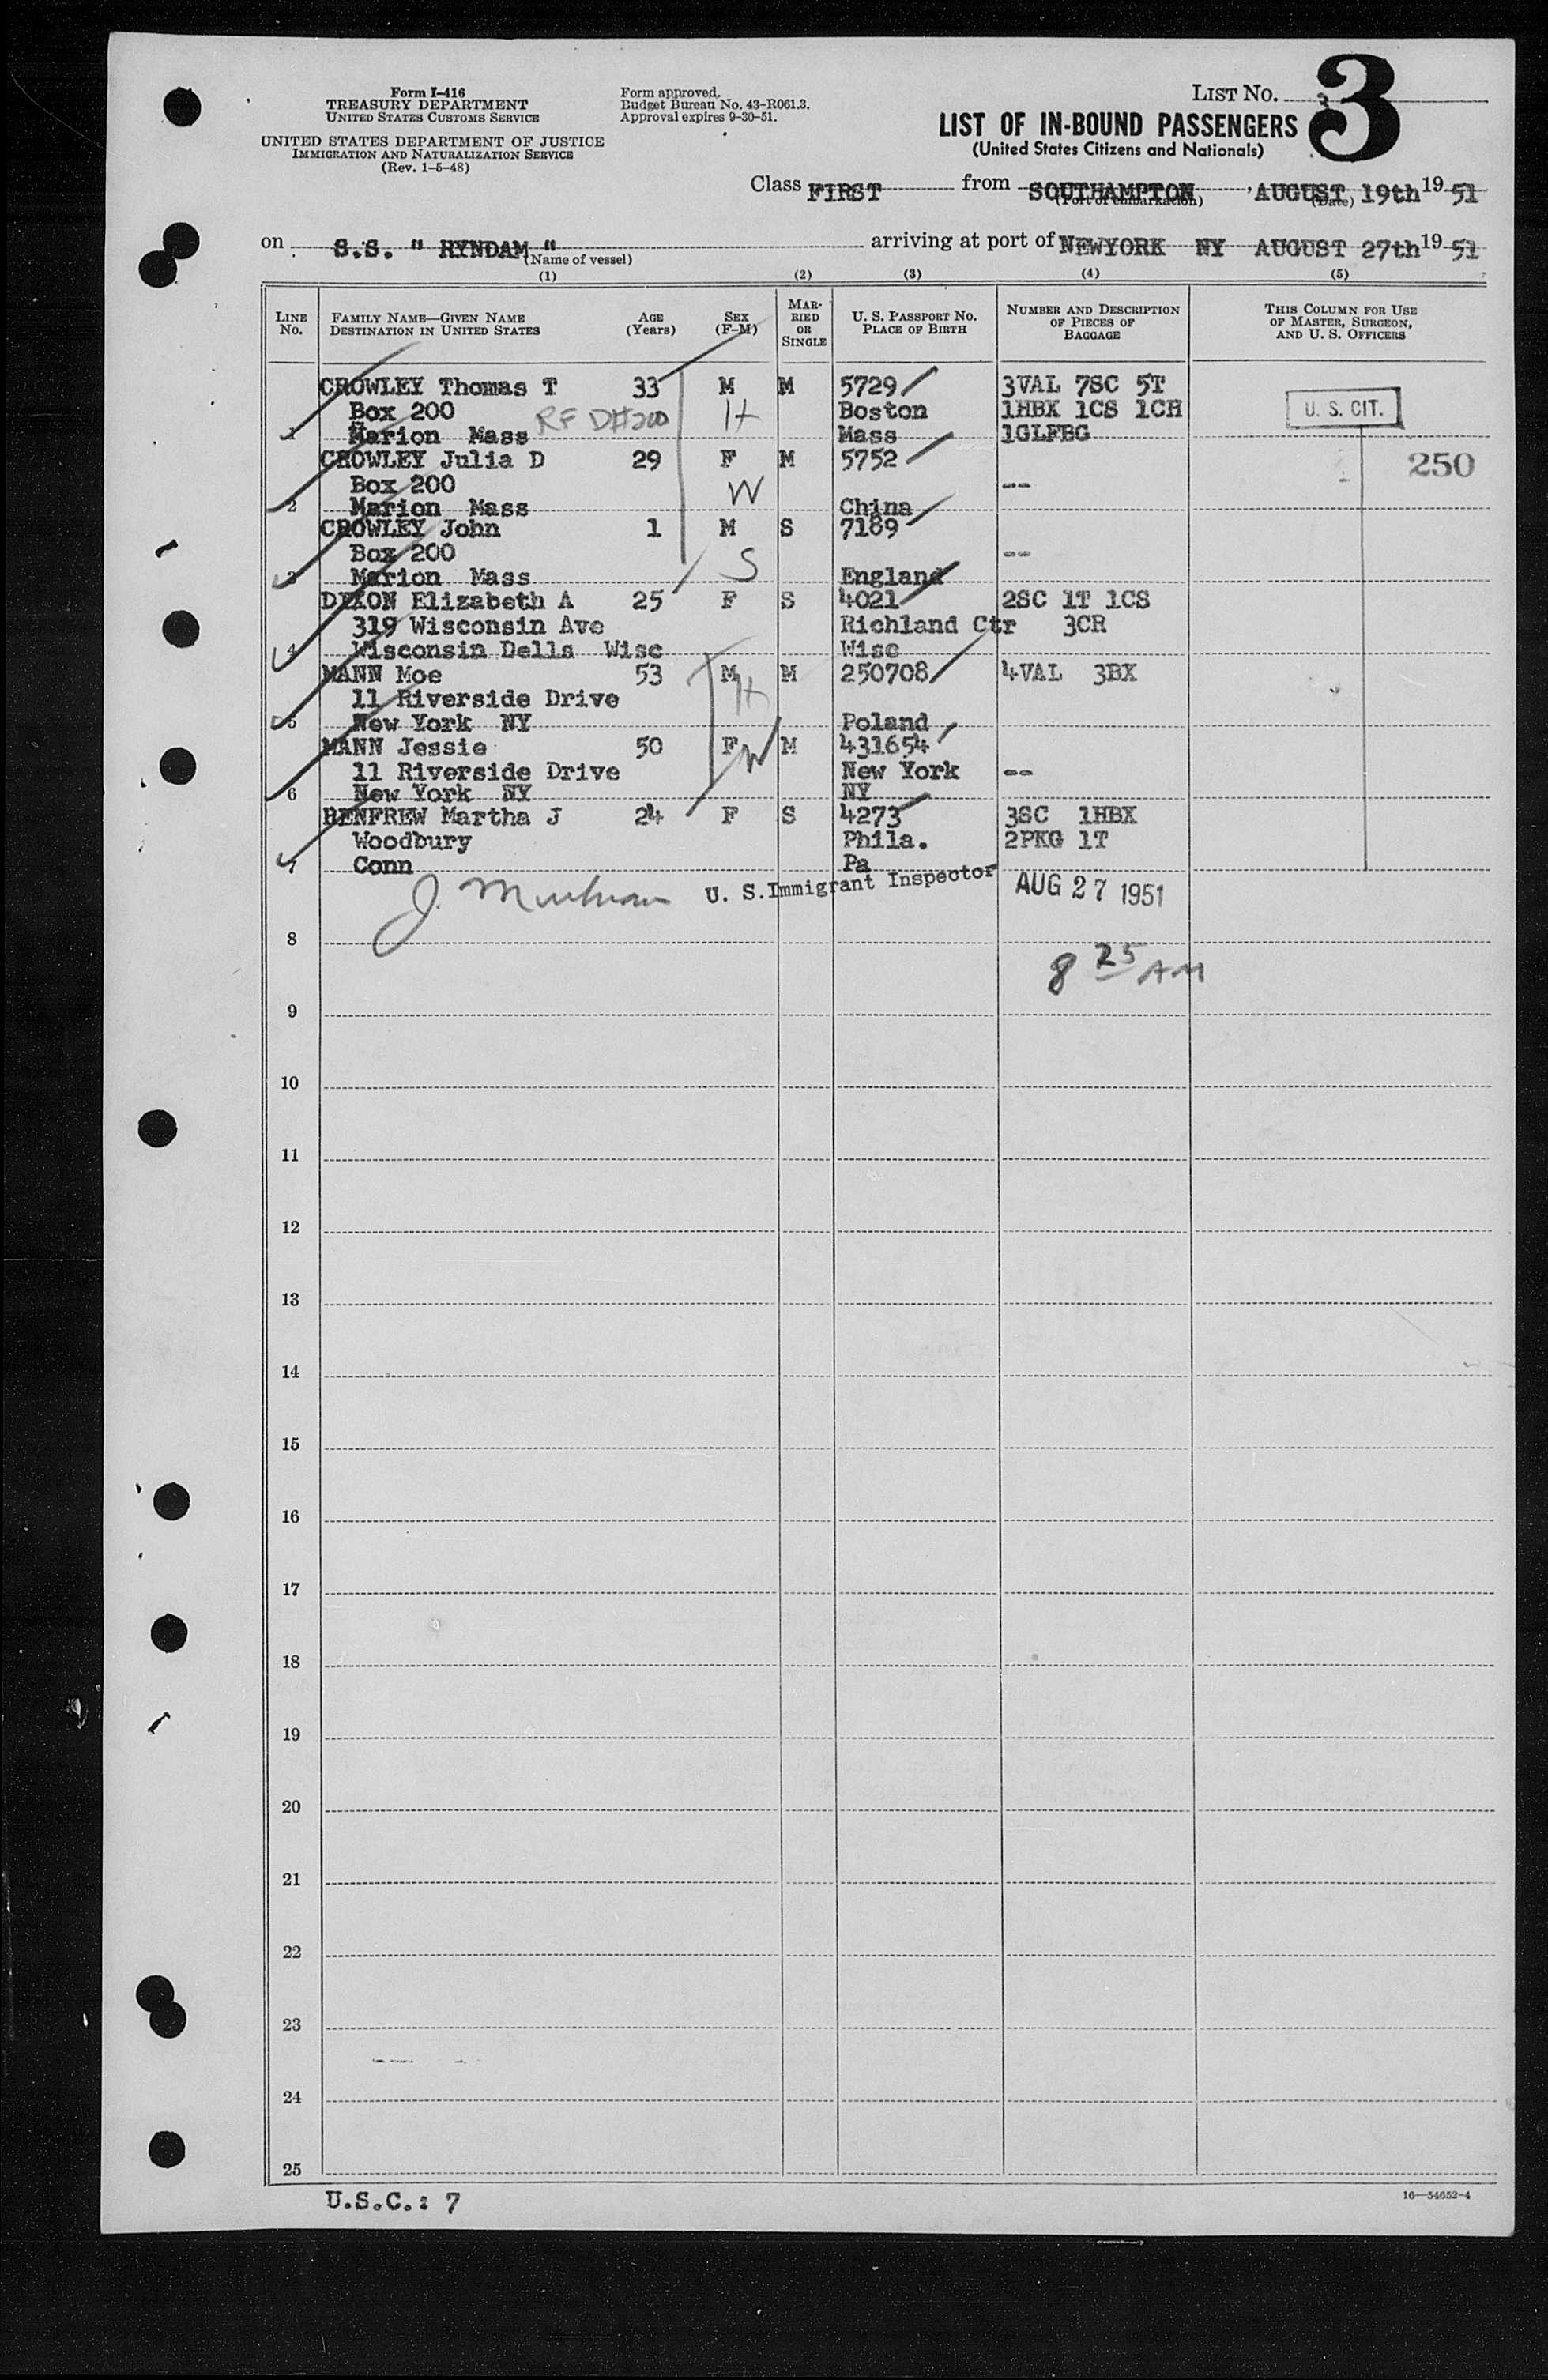 Form I-416
TREASURY DEPARTMENT
UNITED STATES CUSTOMS SERVICE
UNITED STATES DEPARTMENT OF JUSTICE
IMMIGRATION AND NATURALIZATION SERVICE
(Rev. 1-5-48)
Form approved.
Budget Bureau No. 43-R061.3.
Approval expires 9-30-51.
LIST NO. 3
3
LIST OF IN-BOUND PASSENGERS
(United States Citizens and Nationals)
Class FIRST from SOUTHAMPTON, AUGUST 19th 19 51
(Port of embarkation) (Date)
on S.S. " RYNDAM " arriving at port of NEWYORK NY AUGUST 27th 19 51
(Name of vessel)
(1) (2) (3) (4) (5)
LINE No. FAMILY NAME—GIVEN NAME DESTINATION IN UNITED STATES AGE (Years) SEX (F-M) MARRIED OR SINGLE U. S. PASSPORT NO. PLACE OF BIRTH NUMBER AND DESCRIPTION OF PIECES OF BAGGAGE THIS COLUMN FOR USE OF MASTER, SURGEON, AND U. S. OFFICERS
CROWLEY Thomas T 33 M M 5729 3VAL 7SC 5T
Box 200 RF DH200 H Boston 1HBX 1CS 1CH U. S. CIT.
1 Marion Mass Mass 1GLFBG
CROWLEY Julia D 29 F M 5752 250
Box 200 W --
2 Marion Mass China
CROWLEY John 1 M S 7189
Box 200 S --
3 Marion Mass England
DIXON Elizabeth A 25 F S 4021 2SC 1T 1CS
319 Wisconsin Ave Richland Ctr 3CR
4 Wisconsin Dells Wisc Wisc
MANN Moe 53 M M 250708 4VAL 3BX
11 Riverside Drive H
5 New York NY Poland
MANN Jessie 50 F W M 431654
11 Riverside Drive New York --
6 New York NY NY
RENFREW Martha J 24 F S 4273 3SC 1HBX
Woodbury Phila. 2PKG 1T
7 Conn Pa
J. U. S. Immigrant Inspector AUG 27 1951
8
8 25 AM
9
10
11
12
13
14
15
16
17
18
19
20
21
22
23
24
25
U.S.C.: 7
16—54652-4